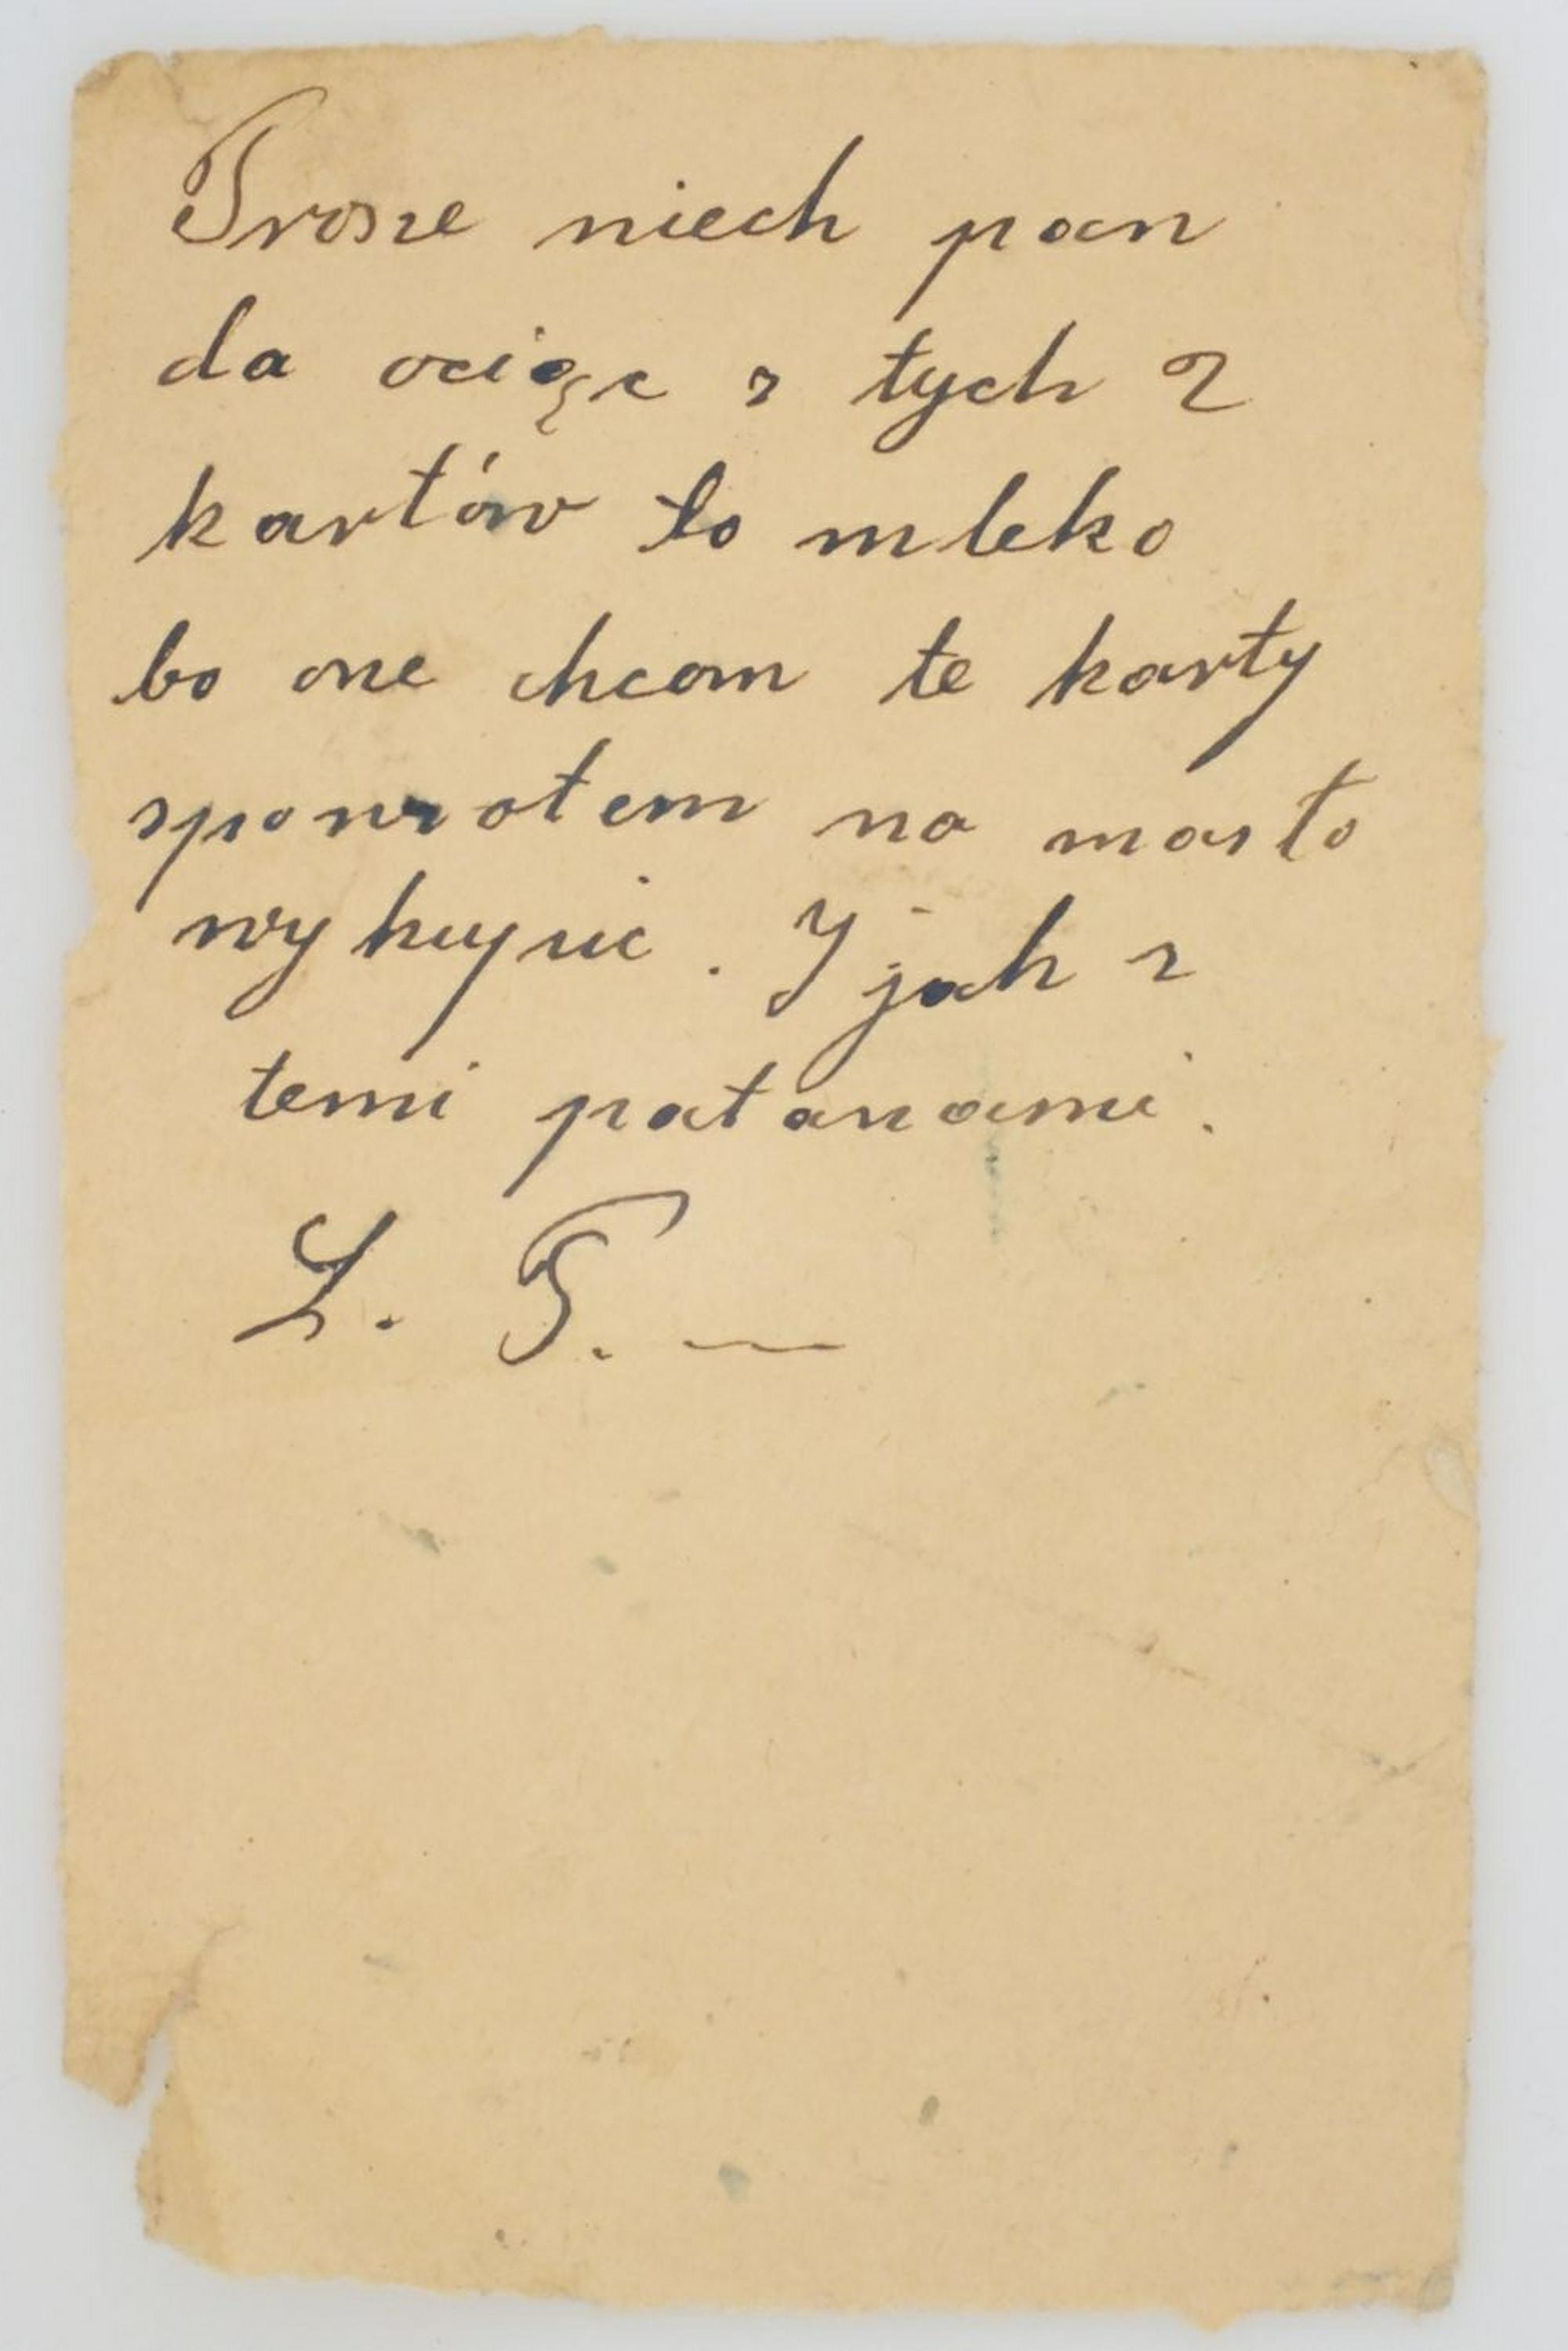 Prosze niech pan
da ociąc z tych 2
kartów to mleko
bo one chcom te karty
spowrotem na masło
wykupic. I jak z
temi patanami.
L. P. —